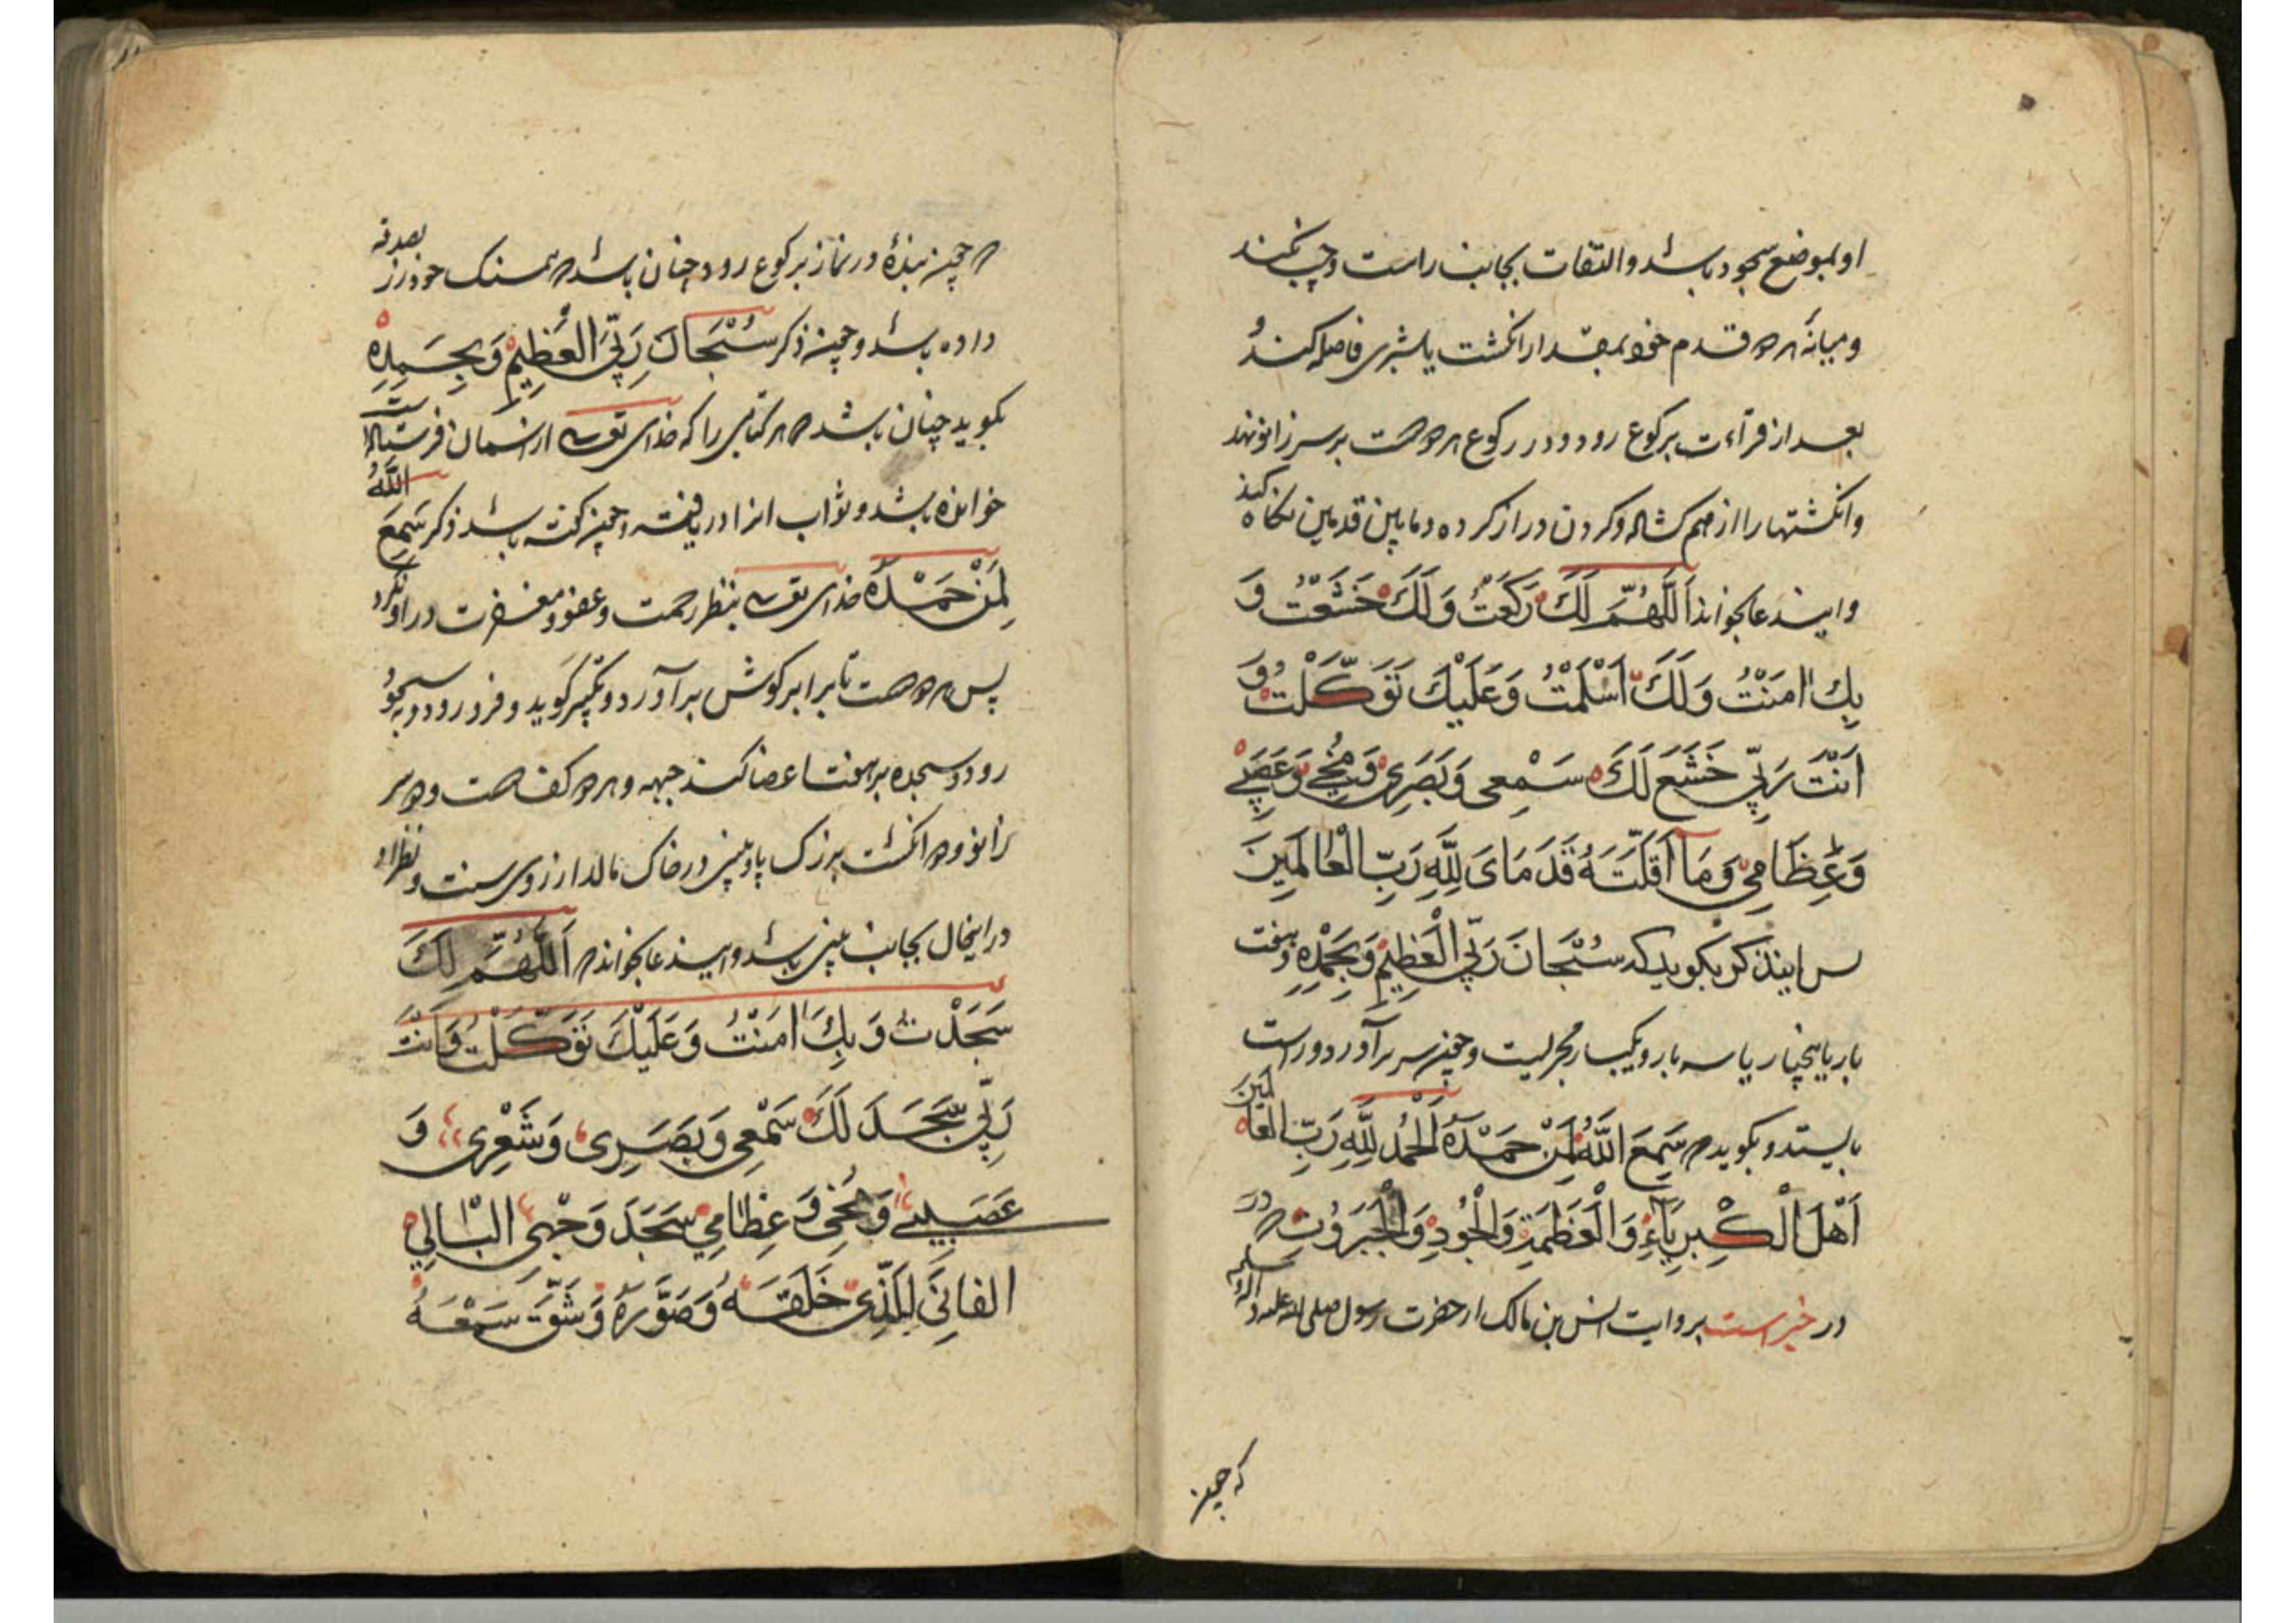 او بموضع سجود باشد و التفات بجانب راست و چپ نکند
و میانه هر دو قدم خود بمقدار انکشت یا شبری فاصله کند و
بعد از قراءت برکوع رود و در رکوع هر دو دست بر سر زانو نهد
و انکشتها را از هم کشاده و کردن دراز کرده و مابین قدمین نکاه کند
و ایندعا بخواند اَللّهُمَّ لَكَ رَكَعْتُ وَلَكَ خَشَعْتُ وَ
بِكَ امَنْتُ وَلَكَ اَسْلَمْتُ وَعَلَيْكَ تَوَكَّلْتُ وَ
اَنْتَ رَبِّي خَشَعَ لَكَ سَمْعِي وَبَصَرِي وَمُخِّي وَعَصَبِي
وَعِظَامِي وَمَا اَقَلَّتْهُ قَدَمَايَ لِلّهِ رَبِّ الْعَالَمِينَ
پس اینذکر بکوید که سُبْحَانَ رَبِّيَ الْعَظِيمِ وَبِحَمْدِهِ و هفت
بار یا پنجبار یا سه بار و یکبار مجزیست و چون سر برآورد و راست
بایستد و بکوید که سَمِعَ اللّهُ لِمَنْ حَمِدَهُ اَلْحَمْدُ لِلّهِ رَبِّ الْعَالَمِينَ
اَهْلَ الْكِبْرِيَاءِ وَالْعَظَمَةِ وَالْجُودِ وَالْجَبَرُوتِ
در خبر است بروایت انس بن مالک از حضرت رسول صلی الله علیه و آله و سلم
که چون
که چون بنده در نماز برکوع رود چنان باشد که همسنک خود زر بصدقه
داده باشد و چون ذکر سُبْحَانَ رَبِّيَ الْعَظِيمِ وَبِحَمْدِهِ
بکوید چنان باشد که هر کتابی را که خدای تعالی از آسمان فرستاده است
خوانده باشد و ثواب آنرا دریافته و چون کفته باشد ذکر سَمِعَ اللّهُ
لِمَنْ حَمِدَهُ خدای تعالی بنظر رحمت و عفو و مغفرت در او نکرد
پس هر دو دست تا برابر کوش برآورد و تکبیر کوید و فرو رود و بسجود
رود و سجده بر هفت اعضا کند جبهه و هر دو کف دست و دو سر
زانو و دو انکشت بزرک پا و بینی در خاک مالد از روی سنت و نظر او
در اینحال بجانب بینی باشد و ایندعا بخواند که اَللّهُمَّ لَكَ
سَجَدْتُ وَبِكَ امَنْتُ وَعَلَيْكَ تَوَكَّلْتُ وَاَنْتَ
رَبِّي سَجَدَ لَكَ سَمْعِي وَبَصَرِي وَشَعْرِي وَ
عَصَبِي وَمُخِّي وَعِظَامِي سَجَدَ وَجْهِيَ الْبَالِي
الفَانِي لِلَّذِي خَلَقَهُ وَصَوَّرَهُ وَشَقَّ سَمْعَهُ